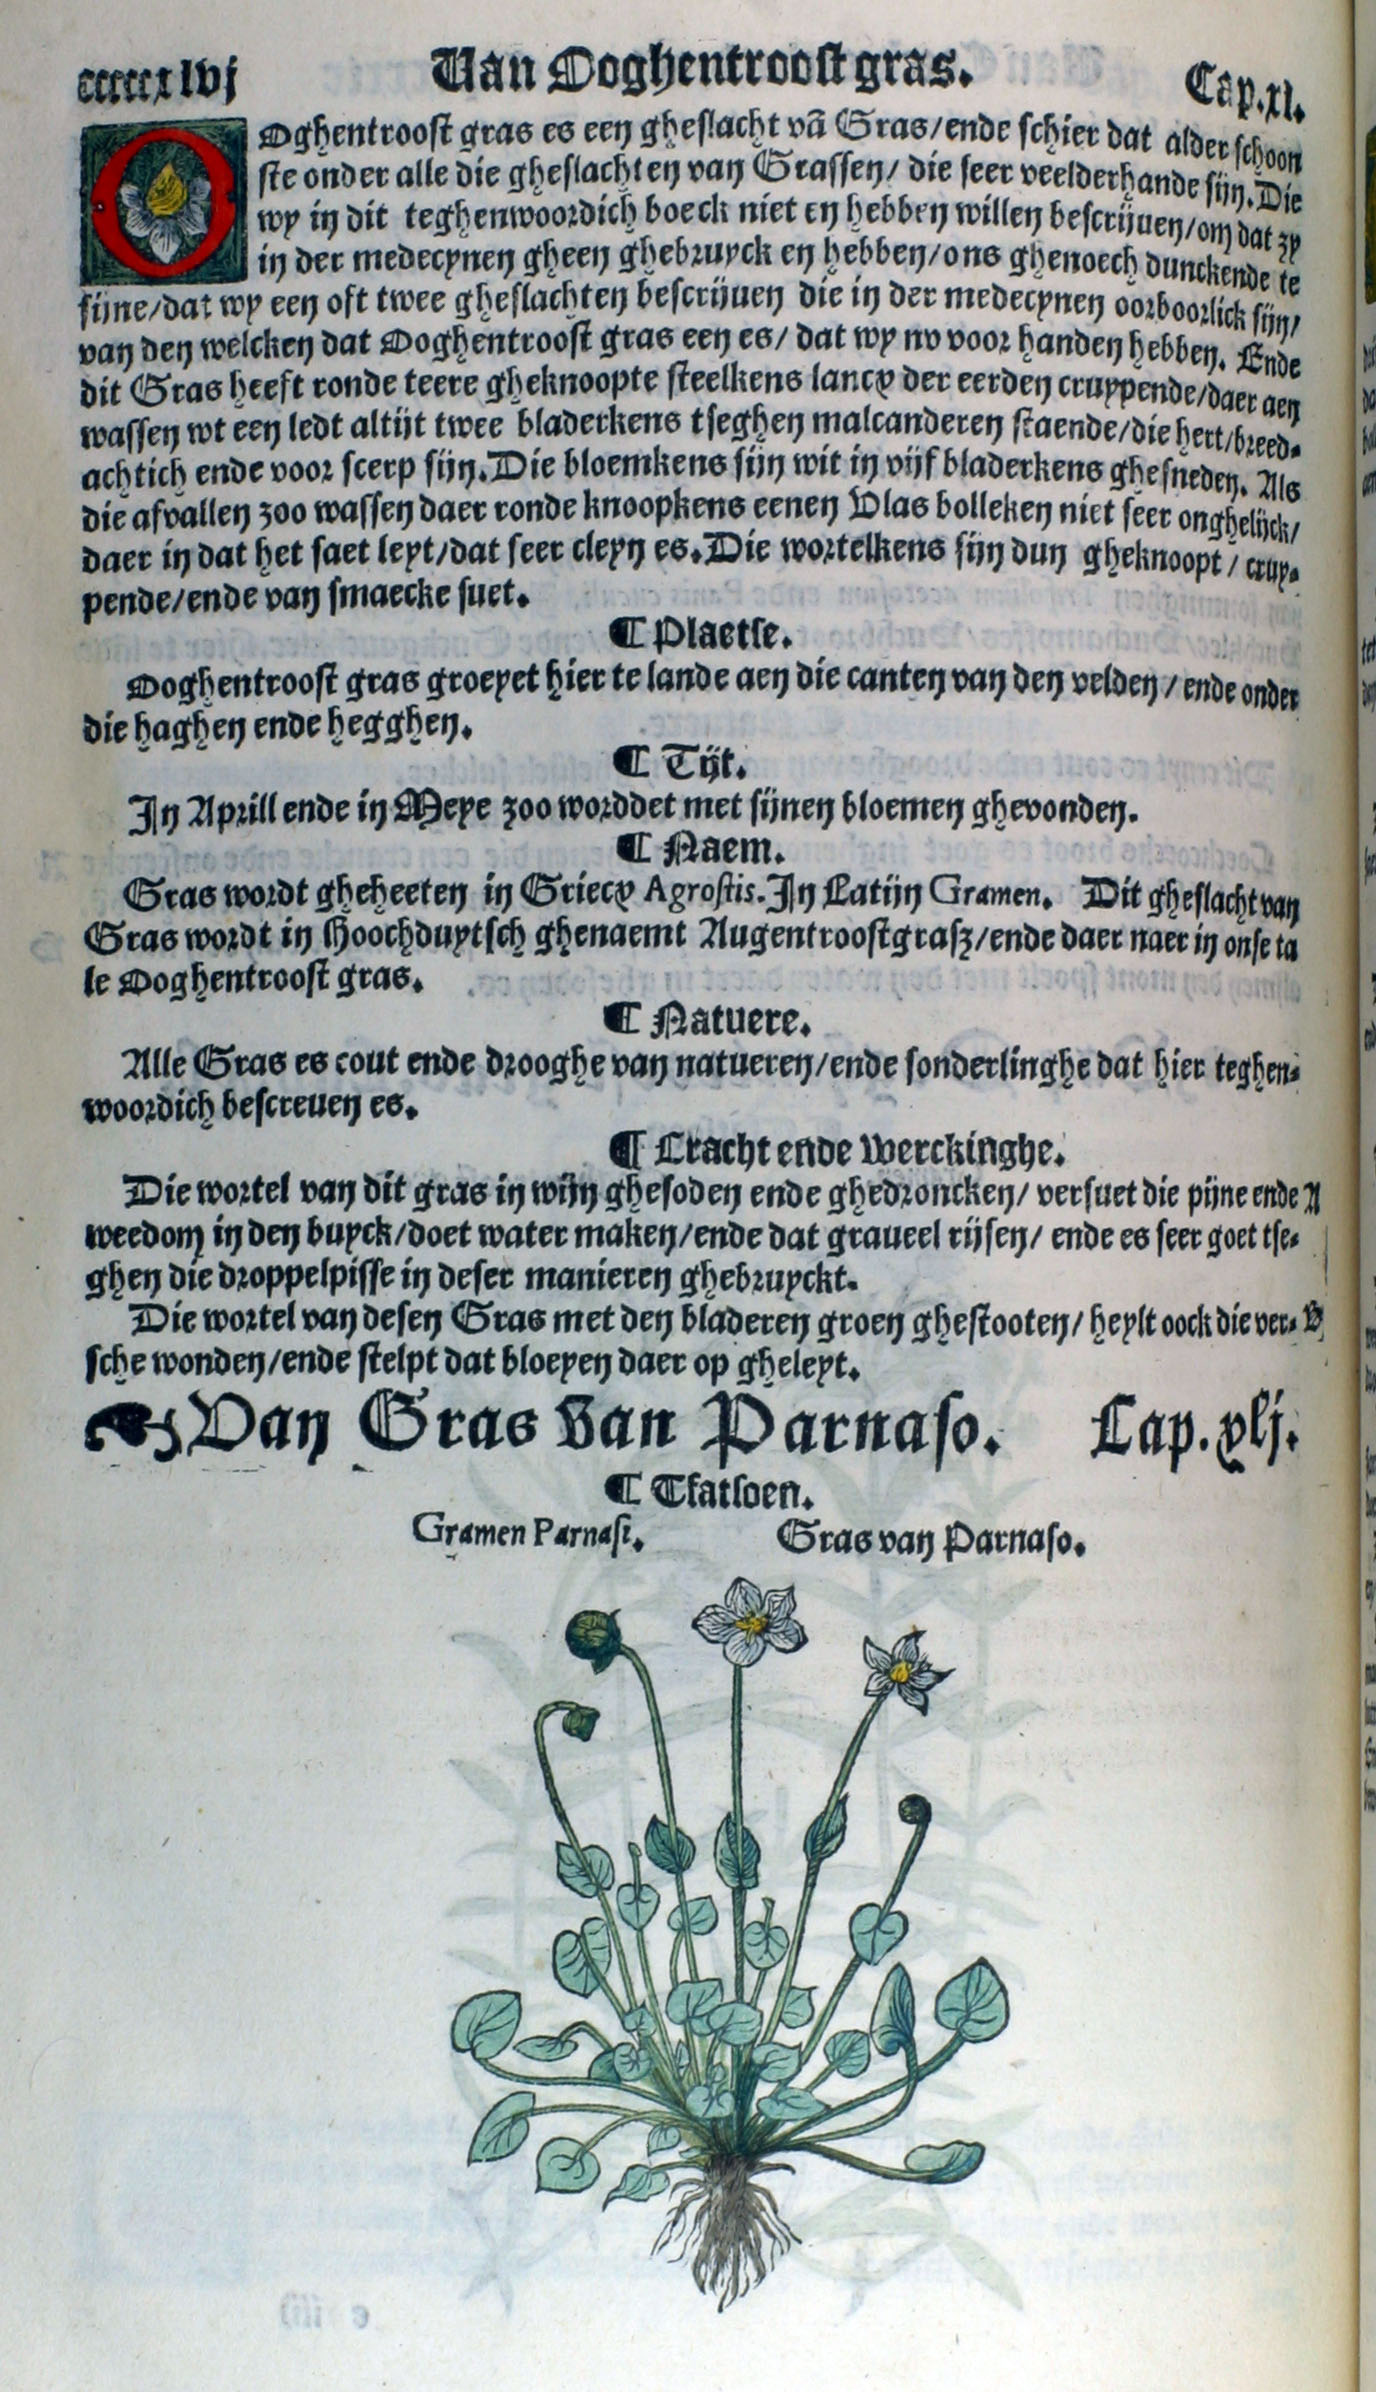 ccccccxlvj Van Ooghentroost gras. Cap.xl.
OOghentroost gras es een gheslacht vā Gras/ende schier dat alder schoon
ste onder alle die gheslachten van Grassen/ die seer veelderhande sijn. Die
wy in dit teghenwoordich boeck niet en hebben willen bescrijuen/om dat zy
in der medecynen gheen ghebruyck en hebben/ons ghenoech dunckende te
sijne/dat wy een oft twee gheslachten bescrijuen die in der medecynen oorboorlick sijn/
van den welcken dat Ooghentroost gras een es/ dat wy nv voor handen hebben. Ende
dit Gras heeft ronde teere gheknoopte steelkens lancx der eerden cruypende/daer aen
wassen wt een ledt altijt twee bladerkens tseghen malcanderen staende/die hert/breed-
achtich ende voor scerp sijn. Die bloemkens sijn wit in vijf bladerkens ghesneden. Als
die afvallen zoo wassen daer ronde knoopkens eenen Vlas bolleken niet seer onghelijck/
daer in dat het saet leyt/dat seer cleyn es. Die wortelkens sijn dun gheknoopt / cruy-
pende/ende van smaecke suet.
¶ Plaetse.
Ooghentroost gras groeyet hier te lande aen die canten van den velden/ende onder
die haghen ende hegghen.
¶ Tijt.
In Aprill ende in Meye zoo worddet met sijnen bloemen ghevonden.
¶ Naem.
Gras wordt gheheeten in Griecx Agrostis. In Latijn Gramen. Dit gheslacht van
Gras wordt in Hoochduytsch ghenaemt Augentroostgrasz/ende daer naer in onse ta
le Ooghentroost gras.
¶ Natuere.
Alle Gras es cout ende drooghe van natueren/ende sonderlinghe dat hier teghen-
woordich bescreuen es.
¶ Cracht ende Werckinghe.
Die wortel van dit gras in wijn ghesoden ende ghedroncken/ versuet die pijne ende A
weedom in den buyck/doet water maken/ende dat graueel rijsen/ ende es seer goet tse-
ghen die droppelpisse in deser manieren ghebruyckt.
Die wortel van desen Gras met den bladeren groen ghestooten/ heylt oock die ver- B
sche wonden/ende stelpt dat bloeyen daer op gheleyt.
Van Gras van Parnaso. Cap.xlj.
¶ Tfatsoen.
Gramen Parnasi. Gras van Parnaso.